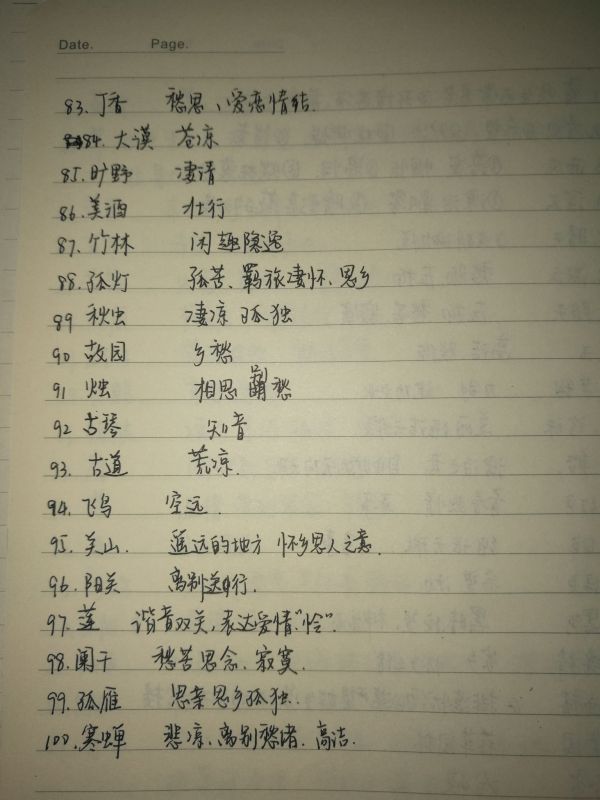 Date. Page.
83. 丁香 愁思、爱恋情结.
84. 大漠 苍凉
85. 旷野 凄清
86. 美酒 壮行
87. 竹林 闲趣隐逸
88. 孤灯 孤苦、羁旅凄怀、思乡
89 秋虫 凄凉 孤独
90 故园 乡愁
91 烛 相思 愁
92 古琴 知音
93. 古道 荒凉.
94. 飞鸟 空远.
95. 关山. 遥远的地方 怀乡思人之意.
96. 阳关 离别送行.
97. 莲 谐音双关,表达爱情"怜".
98. 阑干 愁苦思念、寂寞.
99. 孤雁 思亲思乡孤独.
100. 寒蝉 悲凉、离别愁绪. 高洁.